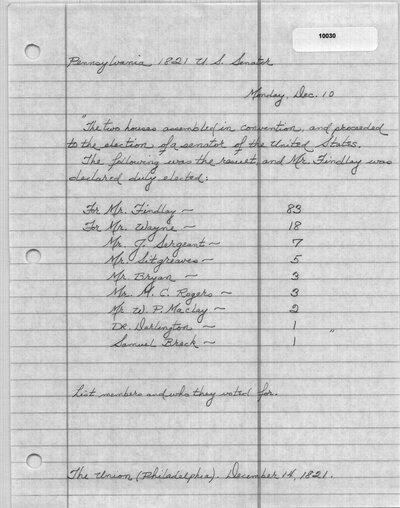 10030
Pennsylvania 1821 U.S. Senator
Monday, Dec. 10
"The two houses assembled in convention, and proceeded
to the election of a senator of the United States.
The following was the result, and Mr. Findlay was
declared duly elected:
For Mr. Findlay — 83
For Mr. Wayne — 18
Mr. J. Sergeant — 7
Mr. Sitgreaves — 5
Mr. Bryan — 3
Mr. M. C. Rogers — 3
Mr. W. P. Maclay — 2
Dr. Darlington — 1 "
Samuel Breck — 1
List members and who they voted for.
The Union (Philadelphia). December 14, 1821.